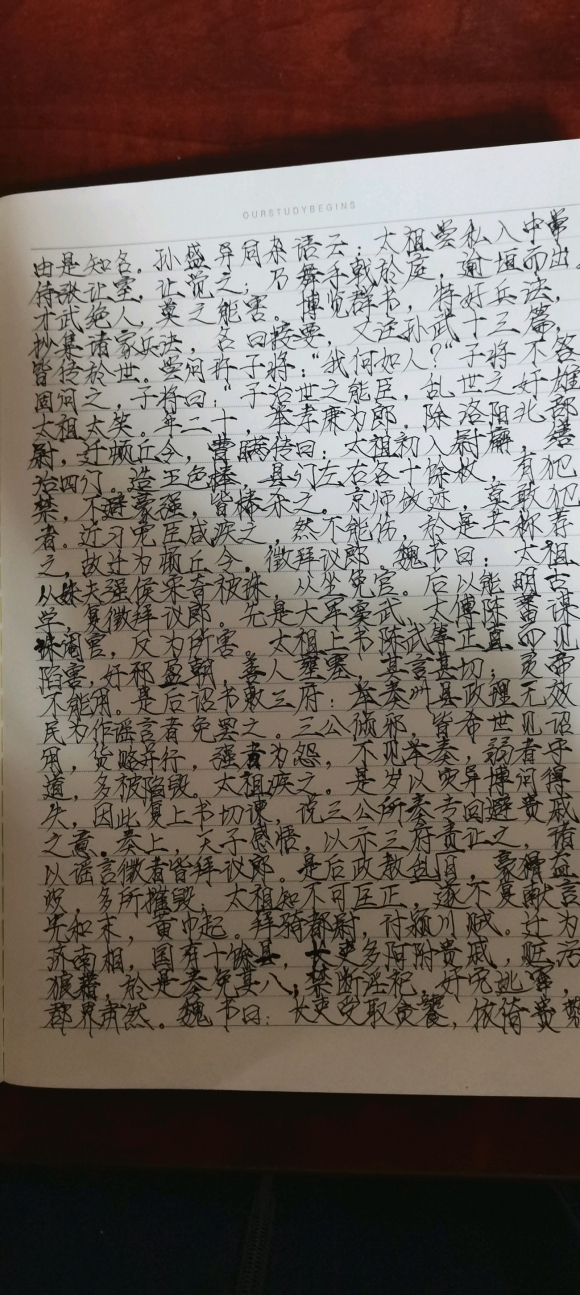 OURSTUDYBEGINS
由是知名。孙盛异同杂语云：太祖尝私入中常
侍张让室，让觉之；乃舞手戟於庭，逾垣而出。
才武绝人，莫之能害。博览群书，特好兵法，
抄集诸家兵法，名曰接要，又注孙武十三篇，
皆传於世。尝问许子将：“我何如人？”子将不答
固问之，子将曰：“子治世之能臣，乱世之奸雄
太祖大笑。年二十，举孝廉为郎，除洛阳北部
尉，迁顿丘令，曹瞒传曰：太祖初入尉廨，缮
治四门。造五色棒，县门左右各十馀枚，有犯
禁，不避豪强，皆棒杀之。京师敛迹，莫敢犯
者。近习宠臣咸疾之，然不能伤，於是共称荐
之，故迁为顿丘令。徵拜议郎。魏书曰：太祖
从妹夫强侯宋奇被诛，从坐免官。后以能明古
学，复徵拜议郎。先是大军窦武、太傅陈蕃谋
诛阉官，反为所害。太祖上书陈武等正直而见
陷害，奸邪盈朝，善人壅塞，其言甚切；灵帝
不能用。是后诏书敕三府：举奏州县政理无效
民为作谣言者免罢之。三公倾邪，皆希世见诏
用，货赂并行，强者为怨，不见举奏，弱者守
道，多被陷毁。太祖疾之。是岁以灾异博问得
失，因此复上书切谏，说三公所奏专回避贵戚
之意。奏上，天子感悟，以示三府责让之，诸
以谣言徵者皆拜议郎。是后政教乱日，豪猾益
炽，多所摧毁；太祖知不可匡正，遂不复献言
光和末，黄巾起。拜骑都尉，讨颍川贼。迁为
济南相，国有十馀县，长吏多阿附贵戚，赃污
狼藉，於是奏免其八；禁断淫祀，奸宄逃窜，
郡界肃然。魏书曰：长吏受取贪饕，依倚贵势